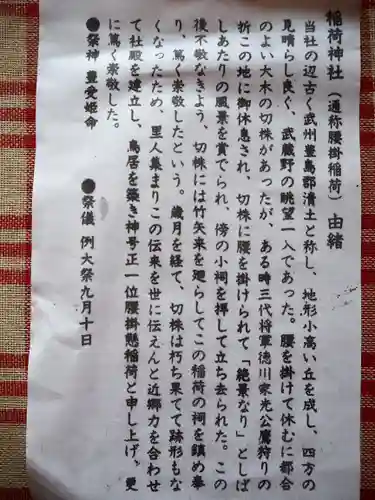 稲荷神社(通称腰掛稲荷)由緒
当社の辺古く武州豊島郡清土と称し、地形小高い丘を成し、四方の
見晴らし良ぐ、武蔵野の眺望一入であった。腰を掛けて休むに都合
のよい大木の切株があったが、ある時三代将軍徳川家光公鷹狩りの
折この地に御休息され、切株に腰を掛けられて「絶景なり」としば
しあたりの風景を賞でられ、傍の小祠を拝して立ち去られた。この
後不敬なきよう、切株には竹矢来を廻らしてこの稲荷の祠を鎮め奉
り、篤く崇敬したという。歳月を経て、切株は朽ち果てて跡形もな
くなったため、里人集まりこの伝来を世に伝えんと近郷力を合わせ
て社殿を建立し、鳥居を築き神号正一位腰掛懸稲荷と申し上げ、更
に篤く崇敬した。
●祭神 豊受姫命 ●祭儀 例大祭九月十日